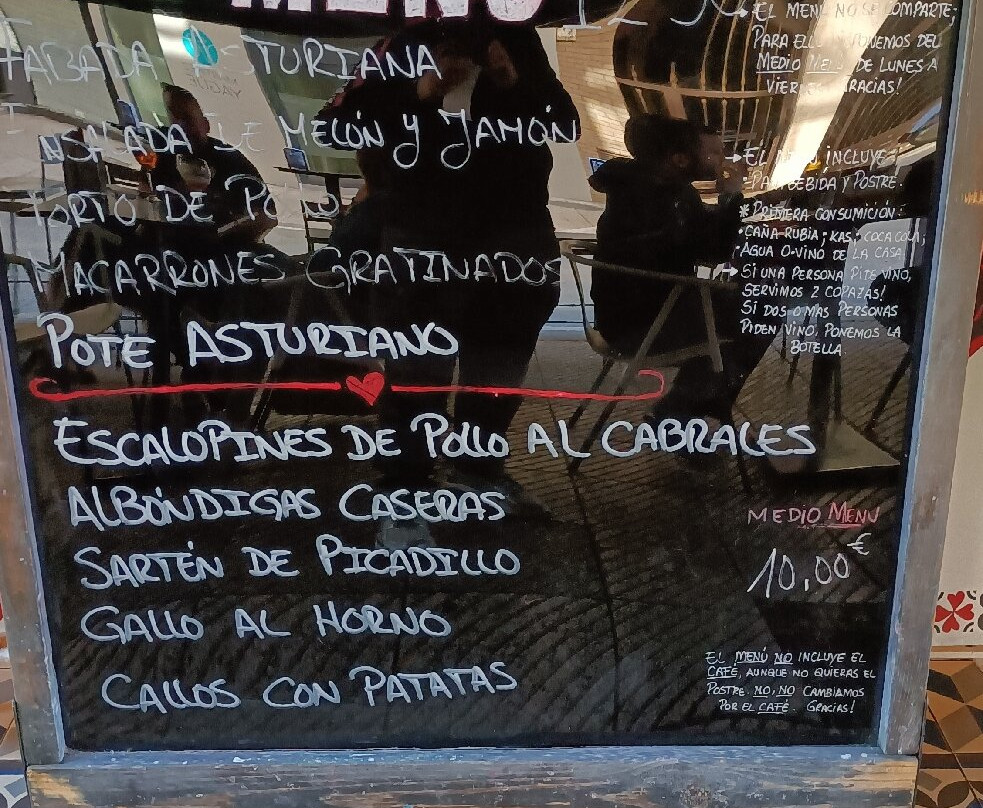 MENÚ
FABADA ASTURIANA
ENSALADA DE MELÓN Y JAMÓN
TORTO DE
MACARRONES GRATINADOS
POTE ASTURIANO
ESCALOPINES DE POLLO AL CABRALES
ALBÓNDIGAS CASERAS
SARTÉN DE PICADILLO
GALLO AL HORNO
CALLOS CON PATATAS
EL MENÚ NO SE COMPARTE;
PARA ELLO DISPONEMOS DEL
MEDIO MENÚ DE LUNES A
VIERNES. GRACIAS!
→ EL MENÚ INCLUYE:
• PAN, BEBIDA Y POSTRE.
* PRIMERA CONSUMICIÓN:
• CAÑA RUBIA; KAS; COCA COLA;
• AGUA O VINO DE LA CASA
→ SI UNA PERSONA PIDE VINO,
SERVIMOS 2 COPAZAS!
SI DOS O MÁS PERSONAS
PIDEN VINO, PONEMOS LA
BOTELLA.
MEDIO MENÚ
10,00€
EL MENÚ NO INCLUYE EL
CAFÉ, AUNQUE NO QUIERAS EL
POSTRE. NO, NO CAMBIAMOS
POR EL CAFÉ. GRACIAS!